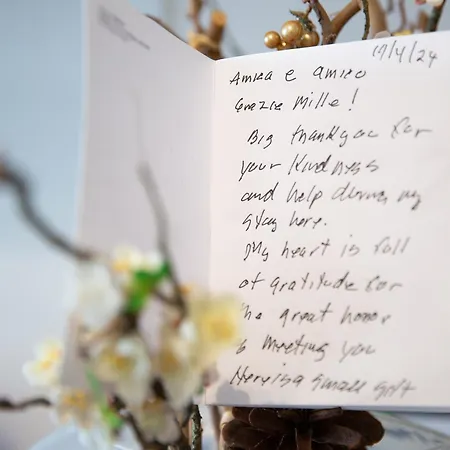 17/4/24
Amica e amico
Grazie Mille!
Big thankyou for
your Kindness
and help during my
stay here.
My heart is full
of gratitude for
the great honor
of meeting you
Here is a small gift